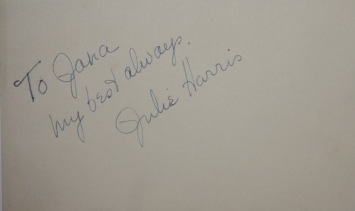 To Jana
my best always.
Julie Harris